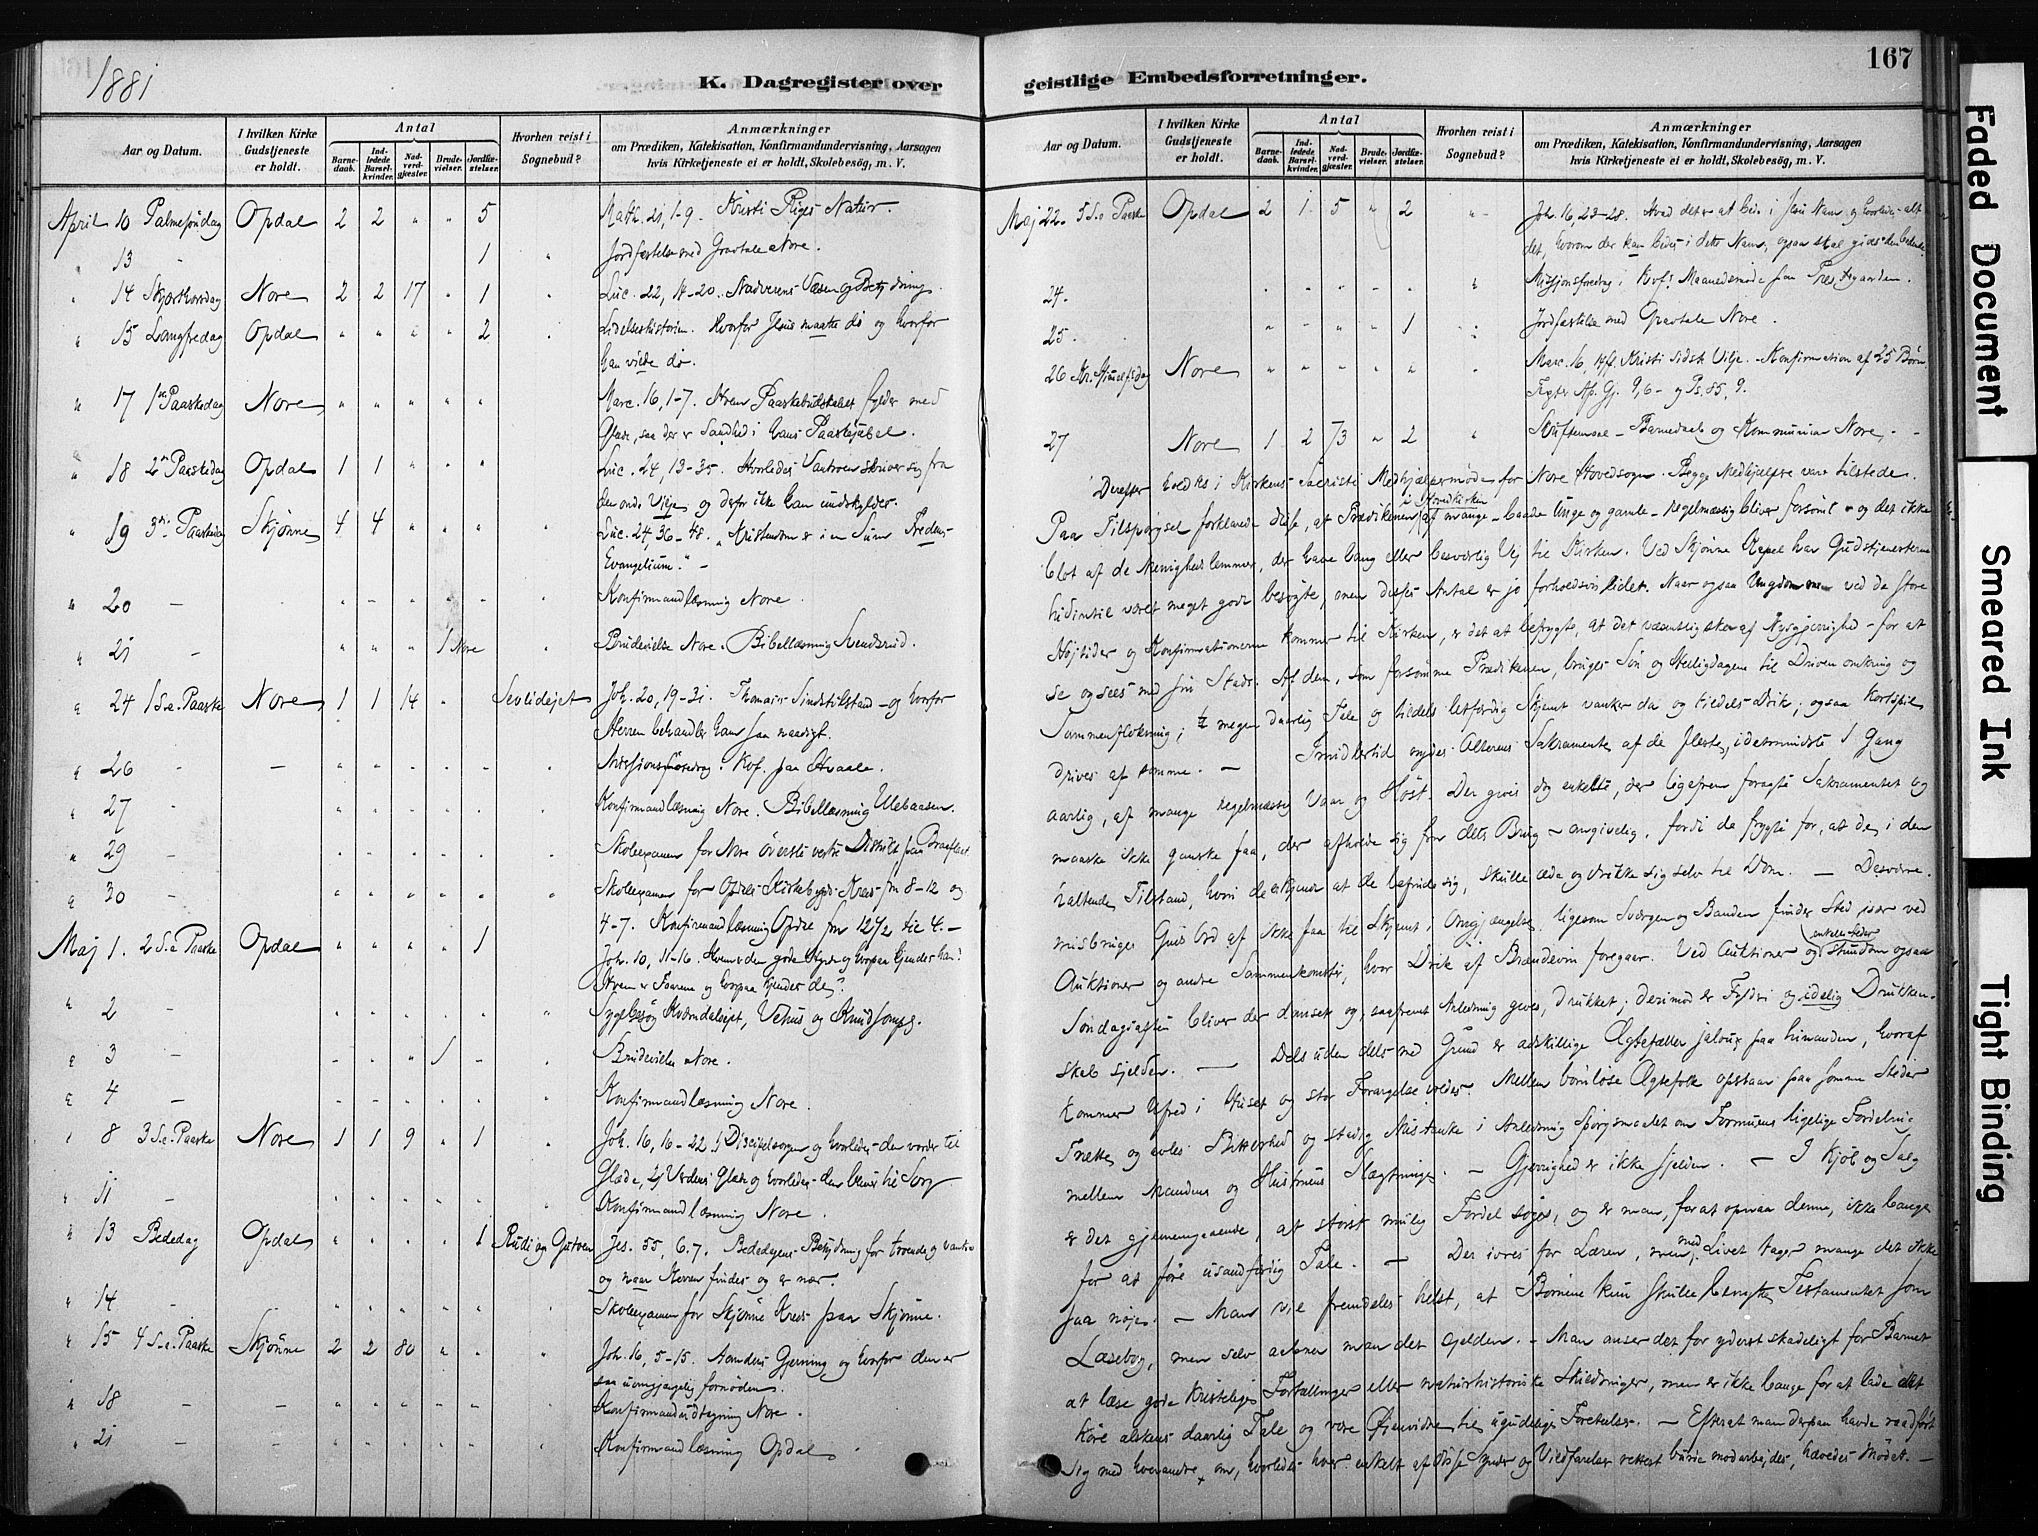 1881
K. Dagregister over
Aar og Datum.
I hvilken Kirke Gudstjeneste er holdt.
Antal
Barnedaab.
Indledede Barselkvinder.
Nadverdgjæster.
Brudevielser.
Jordfæstelser.
Hvorhen reist i Sognebud?
Anmærkninger
om Prædiken, Katekisation, Konfirmandundervisning, Aarsagen
hvis Kirketjeneste ei er holdt, Skolebesøg, m. V.
April 10 Palmesöndag Opdal 2 2 " " 5 Math. 21, 1-9. Kristi Riges Natur.
" 13 - 1 " Jordfæstelse med Gravtale Nore.
" 14 Skjærthorsdag Nore 2 2 17 " 1 " Luc. 22, 14-20. Nadverens Væsen og Betydning.
" 15 Langfredag Opdal " " " " 2 " Lidelseshistorien. Hvorfor Jesus maatte dö og hvorfor
han vilde dö.
" 17 1ste Paaskedag Nore " " " " " Marc. 16, 1-7. Hvem Paaskebudskabet fylder med
Glæde, saa der er Sandhed i hans Paaskejubel.
" 18 2den Paaskedag Opdal 1 1 " " " Luc. 24, 13-35. Hvorledes Vantroen skriver sig fra
den onde Vilje og derfor ikke kan undskyldes.
" 19 3die Paaskedag Skjönne 4 4 " " " " Luc. 24, 36-48. "Kristendom er i en Sum Fredens
Evangelium." -
" 20 - Konfirmandlæsning Nore.
" 21 - " " " 1 Nore " Brudevielse Nore. Bibellæsning Svendsrud.
" 24 1 S. e. Paaske Nore 1 1 14 " Sevlidejet Joh. 20, 19-31. Thomas's Sindstilstand - og hvorfor
Herren behandler ham saa naadigt.
" 26 - - Missionsforedrag. Kof. paa Hvaale.
" 27 - Konfirmandlæsning Nore. Bibellæsning Ulebaasen.
" 29 - Skoleexamen for Nore överste vestre Distrikt paa
" 30 - Skoleexamen for Opdals Kirkebygds Kreds fra 8-12 og
4-7. Konfirmandlæsning Opdal fra 12½ til 4. -
Maj 1. 2 S. e. Paaske Opdal " " " " 1 Joh. 10, 11-16. Hvem er den gode Hyrde og hvorpaa kjendes han?
Hvem er Faarene og hvorpaa kjendes de?
" 2 - Sygebesög Kværndalsejet, Vehus og
" 3 - - - " 1 - " Brudevielse Nore.
" 4 - Konfirmandlæsning Nore.
" 8 3 S. e. Paaske Nore 1 1 9 " 1 " Joh. 16, 16-22. 1) Disciplesorgen og hvorledes den vorder til
Glæde, 2) Verdens Glæde og hvorledes den bliver til Sorg
" 11 - Konfirmandlæsning Nore.
" 13 Bededag Opdal " " " " 1 Rudi og Gutven Jes. 55, 6.7. Bededagens Betydning for troende og vantro
og naar Herren findes og er nær.
" 14 - Skoleexamen for Skjönne Kreds paa Skjönne.
" 15 4 S. e. Paaske Skjönne 2 2 80 " " " Joh. 16, 5-15. Aandens Gjerning og hvorfor den er
saa uomgjængelig fornöden.
" 18 - - Konfirmandudtagning Nore.
" 21 - - Konfirmandlæsning Opdal
geistlige Embedsforretninger.
167
Aar og Datum.
I hvilken Kirke Gudstjeneste er holdt.
Antal
Barnedaab.
Indledede Barselkvinder.
Nadverdgjæster.
Brudevielser.
Jordfæstelser.
Hvorhen reist i Sognebud?
Anmærkninger
om Prædiken, Katekisation, Konfirmandundervisning, Aarsagen
hvis Kirketjeneste ei er holdt, Skolebesøg, m. V.
Maj 22. 5 S. e. Paaske Opdal 2 1 5 " 2 " Joh. 16, 23-28. Hvad det er at bede i Jesu Navn, og hvorledes alt
det, hvorom der kan bedes i dette Navn, ogsaa skal gives den bedende.
24. Missionsforedrag i Kof. Maanedsmöde paa Prestegaarden.
25. " " " " 1 " Jordfæstelse med Gravtale Nore.
26 Kr. Himmelfsdag Nore " " " " " Marc. 16, 14ff. Kristi sidste Vilje. - Konfirmation af 25 Börn
Texter Ap. Gj. 9, 6 - og Ps. 85, 9.
27 Nore 1 2 73 " 2 " Skriftemaal - Barnedaab og Kommunion Nore. -
Derefter holdtes i Kirkens Sacristi Medhjælpermöde for Nore Hovedsogn. Begge Medhjælpere vare tilstede.
Paa Tilspörgsel forklarede disse, at Prædikenen i Hovedkirken af mange - baade Unge og gamle - regelmæssig bliver forsömt - og det ikke
blot af de Menighedslemmer, der have lang eller besværlig Vej til Kirken. Ved Skjönne Kapel har Gudstjenesterne
hidindtil været meget godt besögte, men disses Antal er jo forholdsvis lidet. Naar ogsaa Ungdommen ved de store
Höjtider og Konfirmationerne kommer til Kirken, er det at befrygte, at det væsentlig sker af Nysgjerrighed - for at
se og sees med sin Stads. Af dem, som forsömme Prædikenen, bruges Sön og Helligdagene til Driven omkring og
Sammenflokning; megen daarlig Tale og tildels letfærdig Skjemt vanker da og tildels Drik; ogsaa Kortspil
drives af somme. - Imidlertid nydes Alterens Sakramente af de fleste, idetmindste 1 Gang
aarlig, af mange regelmæssig Vaar og Höst. Der gives dog enkelte, der ligefrem foragte Sakramentet og
maaske ikke ganske faa, der afholde sig fra dets Brug - angivelig, fordi de frygte for, at de i den
Tilstand, hvori de erkjender at de befinde sig, skulle æde og drikke sig selv til Dom. - Desværre
misbruges Guds Ord af ikke faa til Skjemt i Omgjængelse, ligesom Sværgen og Banden finder Sted især ved
Auktioner og andre Sammenkomster, hvor Drik af Brændevin foregaar. Ved Auktioner og enkelte Steder stundom ogsaa
Söndagsaften bliver der danset og, saafremt Anledning gives, drukket; derimod er Fylderi og idelig Drukken-
skab sjelden. - Dels uden dels med Grund er adskillige Ægtefæller jaloux paa hinanden, hvoraf
kommer Ufred i Huset og stor Forargelse voldes. Mellem barnlöse Ægtefolk opstaar paa somme Steder
Trætte og avles Bitterhed og stadig Mistanke i Anledning Spörgsmaalet om Formuens ligelige Fordeling
mellem Mandens og Hustruens Slægtninge. - Gjerrighed er ikke sjelden. - I Kjöb og Salg
er det gjennemgaaende, at störst mulig Fordel söges, og er man, for at opnaa denne, ikke bange
for at före usandfærdig Tale. - Der ivres for Læren, men med Livet tager mange det ikke
saa nöje. - Man vil fremdeles helst, at Börnene kun skulle benytte Testamentet som
Læsebog, men selv aabner man det sjelden. - Man anser det for yderst skadeligt for Barnet
at læse gode kristelige Fortællinger eller naturhistoriske Skildringer, men er ikke bange for at lade det
höre alskens daarlig Tale og være Öjenvidne til ugudelige Foreteelser. - Efterat man derpaa havde raadfört
sig med hverandre om, hvorledes hver enkelt af disse Synder og Vildfarelser rettest burde modarbejdes, hævedes Mödet. -
Faded Document
Smeared Ink
Tight Binding